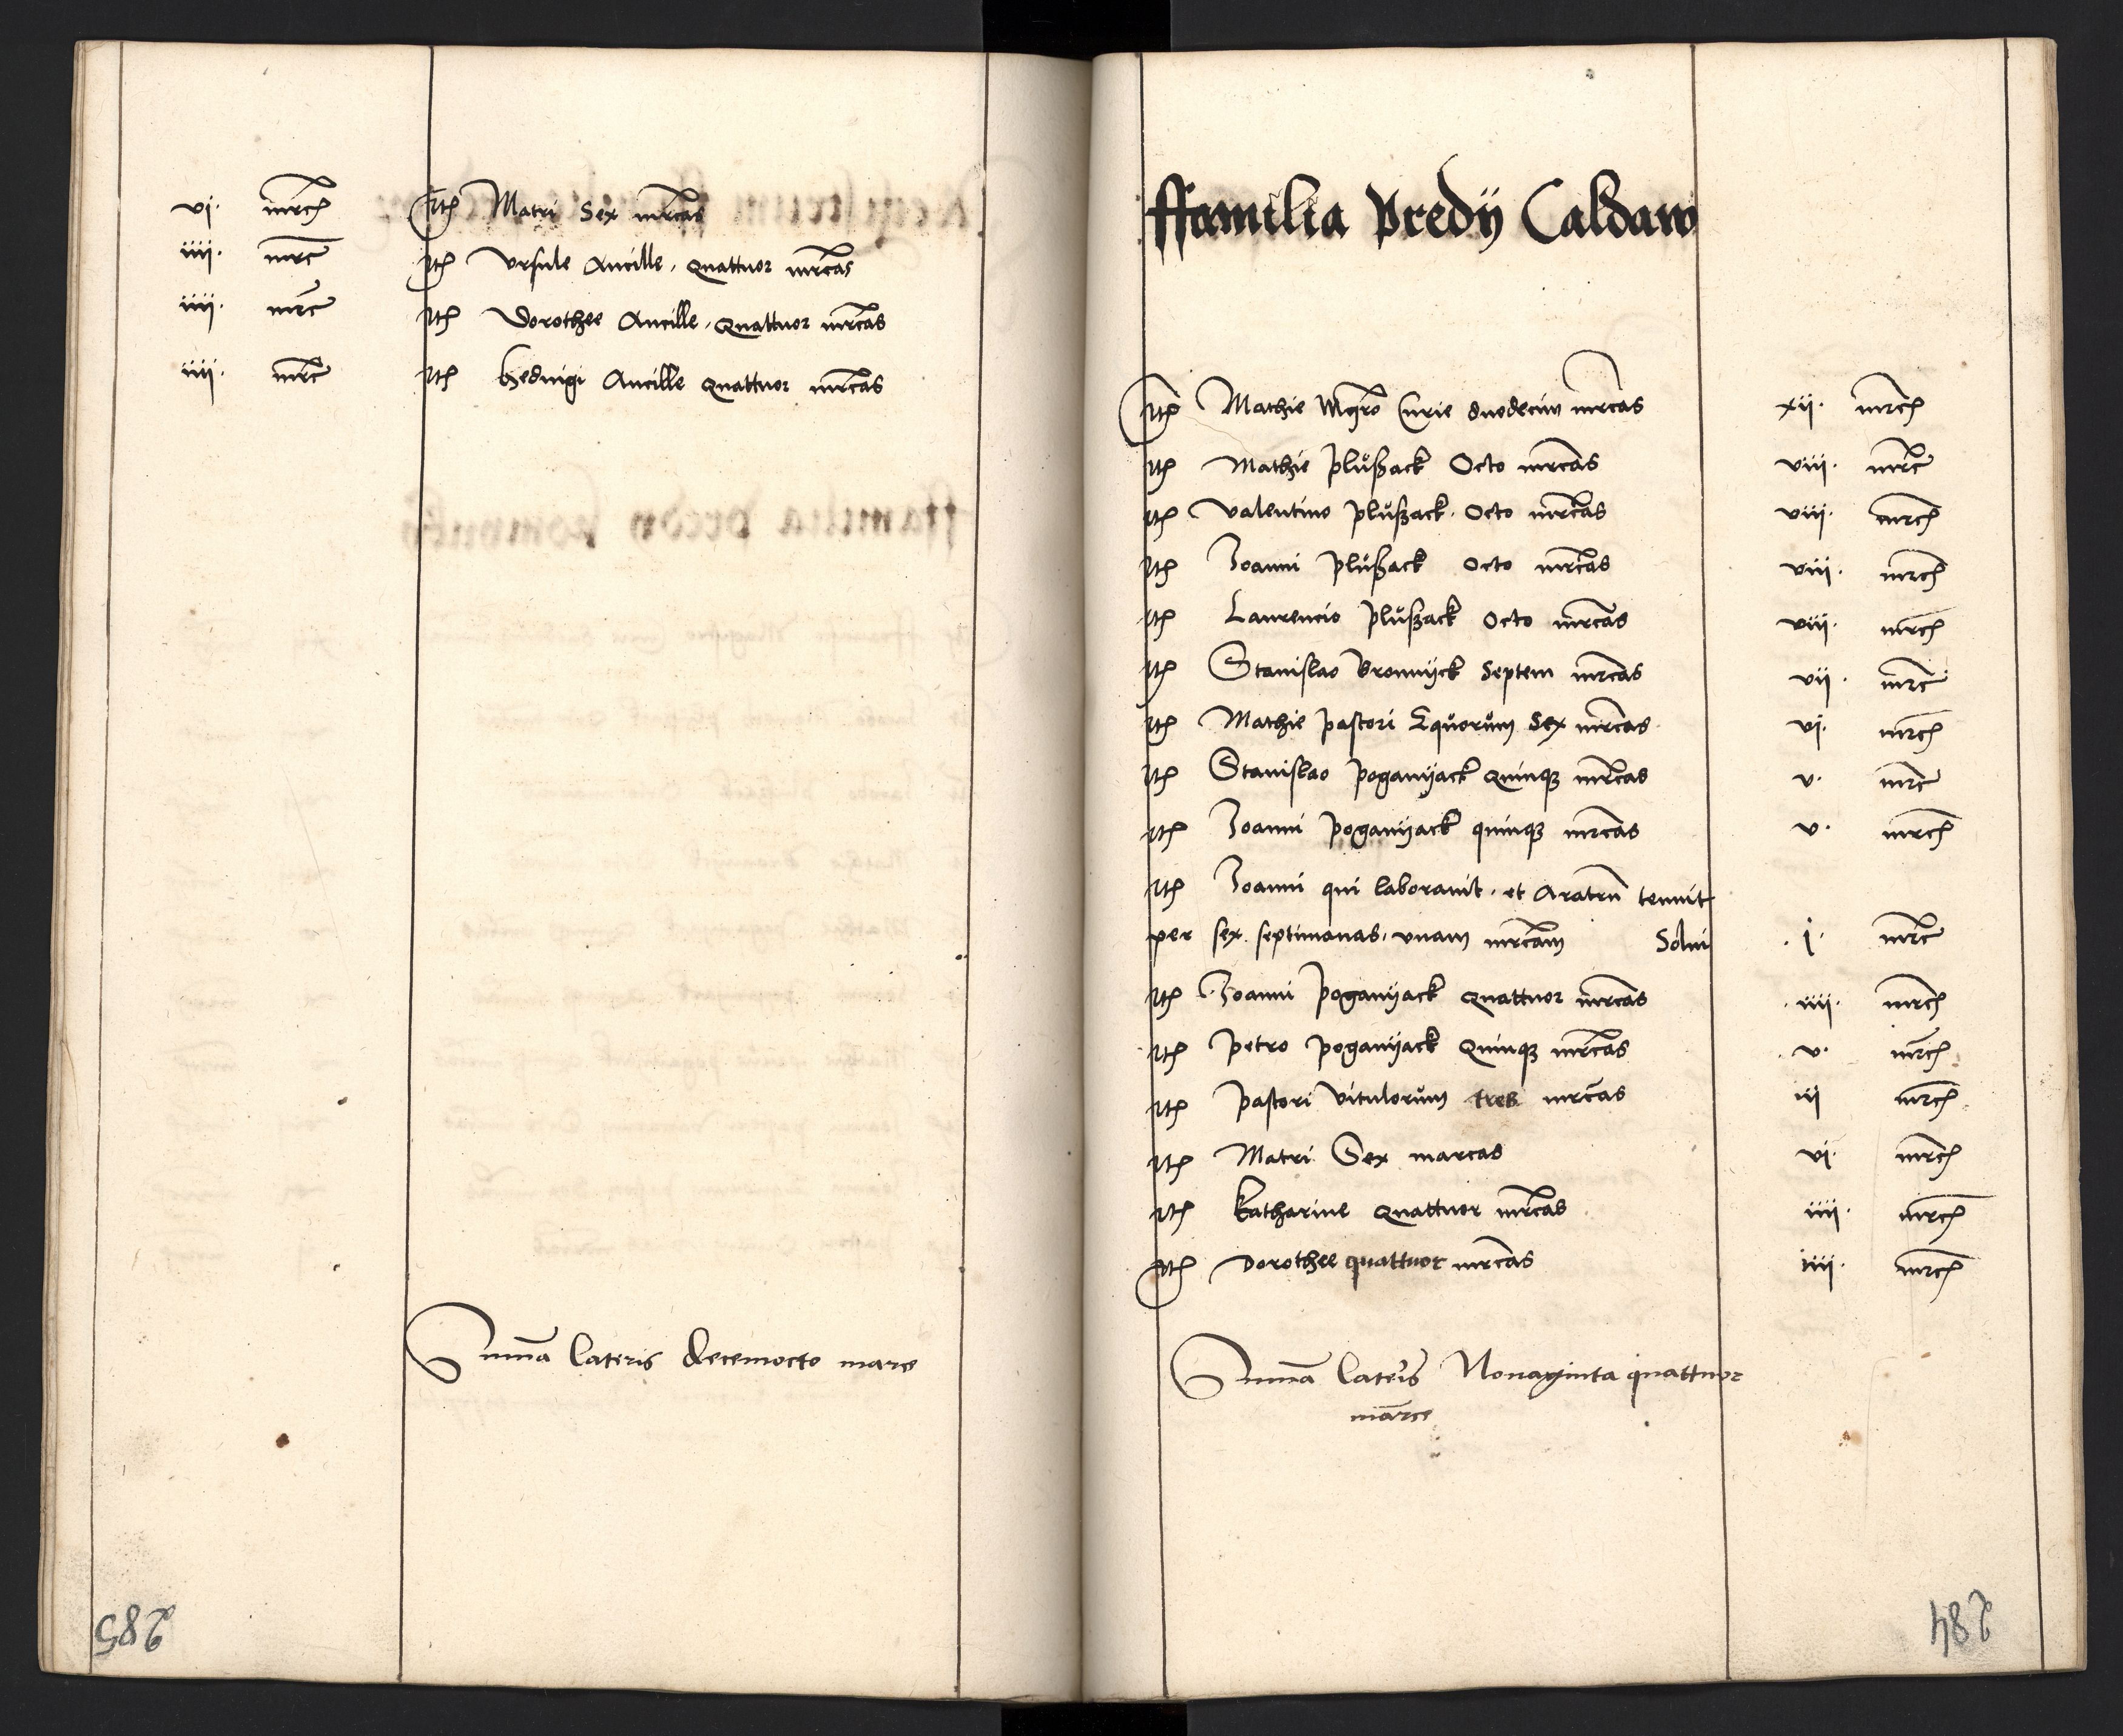 vi. mrc Itē Matri Sex mrcas
iiii. mrc Itē Vrsule Ancille, quattuor mrcas
iiii. mrc Itē Dorothee Ancille, quattuor mrcas
iiii. mrc Itē Hedwigi Ancille quattuor mrcas
Summa lateris decemocto marc
285
ffamilia Predij Caldaw
Itē Mathie Mgro Curie duodecim mrcas xii. mrc
Itē Mathie plußack Octo mrcas viii. mrc
Itē Valentino plußack. Octo mrcas viii. mrc
Itē Joanni plußack Octo mrcas viii. mrc
Itē Laurencio plußack Octo mrcas viii. mrc
Itē Stanislao Bronnijck Septem mrcas vii. mrc
Itē Mathie pastori Equorum Sex mrcas vi. mrc
Itē Stanislao poganijack quinqȝ mrcas v. mrc
Itē Joanni poganijack quinqȝ mrcas v. mrc
Itē Joanni qui laboravit. et Aratrū tenuit
per sex septimanas, vnam mrcam Solui .j. mrc
Itē Joanni poganijack quattuor mrcas .iiii. mrc
Itē petro poganijack Quinqȝ mrcas v. mrc
Itē pastori vitulorum tres mrcas iii mrc
Itē Matri Sex marcas vi. mrc
Itē Katharine quattuor mrcas iiii. mrc
Itē Dorothee quattuor mrcas iiii. mrc
Summa lateris Nonaginta quattuor
marce
284